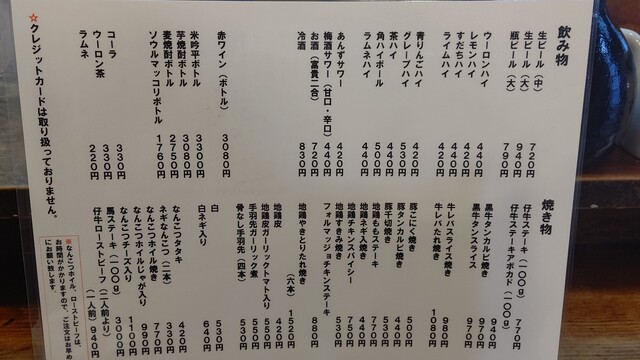 飲み物
生ビール（中） 720円
生ビール（大） 940円
瓶ビール（大） 790円
ウーロンハイ 440円
レモンハイ 420円
すだちハイ 440円
ライムハイ 420円
青りんごハイ 420円
グレープハイ 530円
茶ハイ 440円
角ハイボール 500円
ラムネハイ 440円
あんずサワー 420円
梅酒サワー（甘口・辛口） 440円
お酒（富貴二合） 720円
冷酒 830円
赤ワイン（ボトル） 3080円
米吟平ボトル 3300円
芋焼酎ボトル 3080円
麦焼酎ボトル 2750円
ソウルマッコリボトル 1760円
コーラ 330円
ウーロン茶 330円
ラムネ 220円
☆クレジットカードは取り扱っておりません。
焼き物
仔牛ステーキ（100g） 770円
仔牛ステーキアボカド（100g）
黒牛タンカルビ焼き 940円
黒牛タンスライス 970円
牛レバスライス焼き 970円
牛レバたれ焼き 1080円
豚こにく焼き 500円
豚タンカルビ焼き 440円
豚千切焼き 530円
地鶏ももステーキ 770円
地鶏ネギ入焼き
地鶏チキンスパイシー
地鶏すきみ焼き
フォルマッジョチキンステーキ 880円
地鶏やきとりたれ焼き（六本） 1520円
地鶏皮 420円
地鶏皮ガーリックトマト入り 550円
手羽先ガーリック煮 550円
骨なし手羽先（四本） 530円
白 530円
白ネギ入り 640円
なんこつタタキ 420円
ネギなんこつ（二本） 330円
なんこつホイル焼き 770円
なんこつホイルじゃが入り 990円
なんこつチーズ入り 1100円
馬ステーキ（100g） 3000円
仔牛ローストビーフ（二人前より）（一人前） 940円
※なんこつホイル、ローストビーフは、
お時間がかかりますので、ご注文はお早め
にお願い致します。